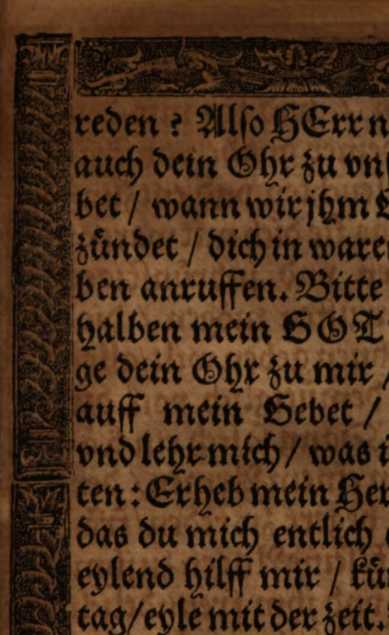 reden ? Also HErr n
auch dein Ohr zu vn
bet / wann wir jhm
zündet / dich in ware
ben anruffen. Bitte
halben mein GOT
ge dein Ohr zu mir /
auff mein Gebet /
vnd lehr mich / was i
ten: Erheb mein Her
das du mich entlich
eylend hilff mir / kün
tag/eyle mit der zeit.